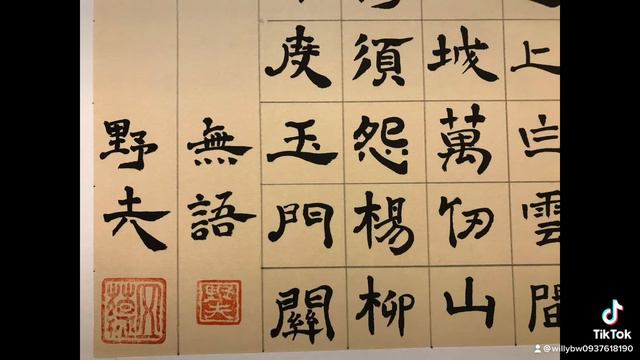 上白雲間
城萬仞山
須怨楊柳
度玉門關
無語
野夫
野夫
TikTok
@willybw0937618190